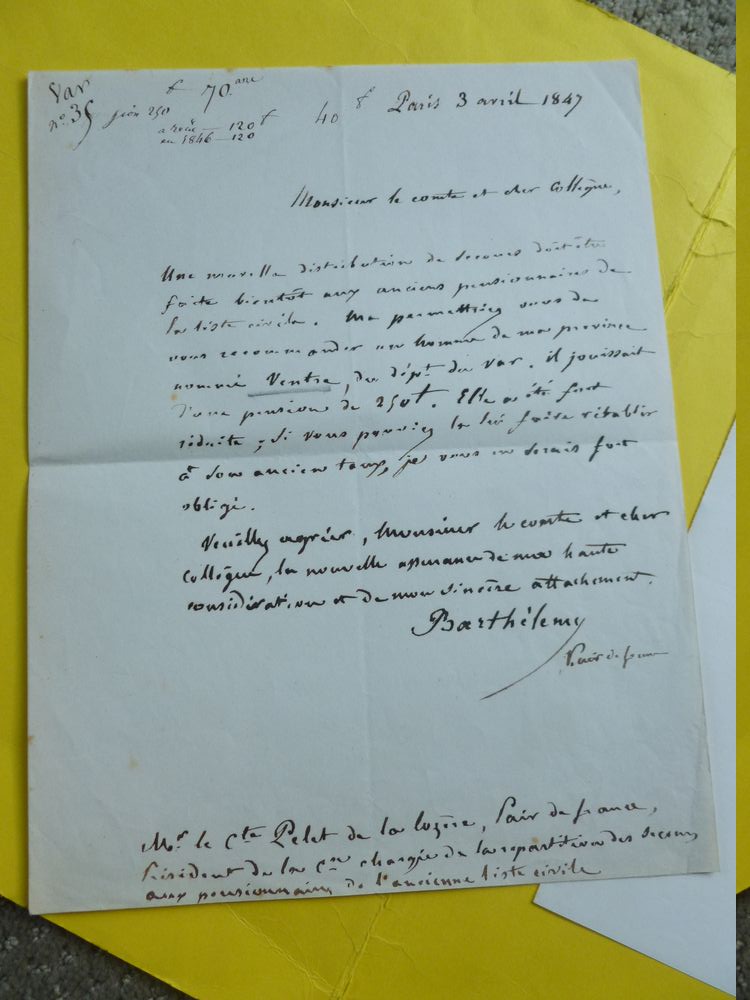 Var 70 ans
n° 35 pson 250
a reçu — 120 f 40 f Paris 3 avril 1847
en 1846 — 120
Monsieur le comte et cher Collègue,
Une nouvelle distribution de secours doit être
faite bientôt aux anciens pensionnaires de
la liste civile. Me permettriez vous de
vous recommander un homme de ma province
nommé Ventre, du dépt du Var. il jouissait
d'une pension de 250 f. Elle a été fort
réduite ; si vous pouviez la lui faire rétablir
à son ancien taux, je vous en serais fort
obligé.
Veuillez agréer, Monsieur le comte et cher
Collègue, la nouvelle assurance de ma haute
considération et de mon sincère attachement.
Barthélemy
Pair de france
Mr le Cte Pelet de la lozère, Pair de france,
Président de la Con chargée de la répartition des secours
aux pensionnaires de l'ancienne liste civile